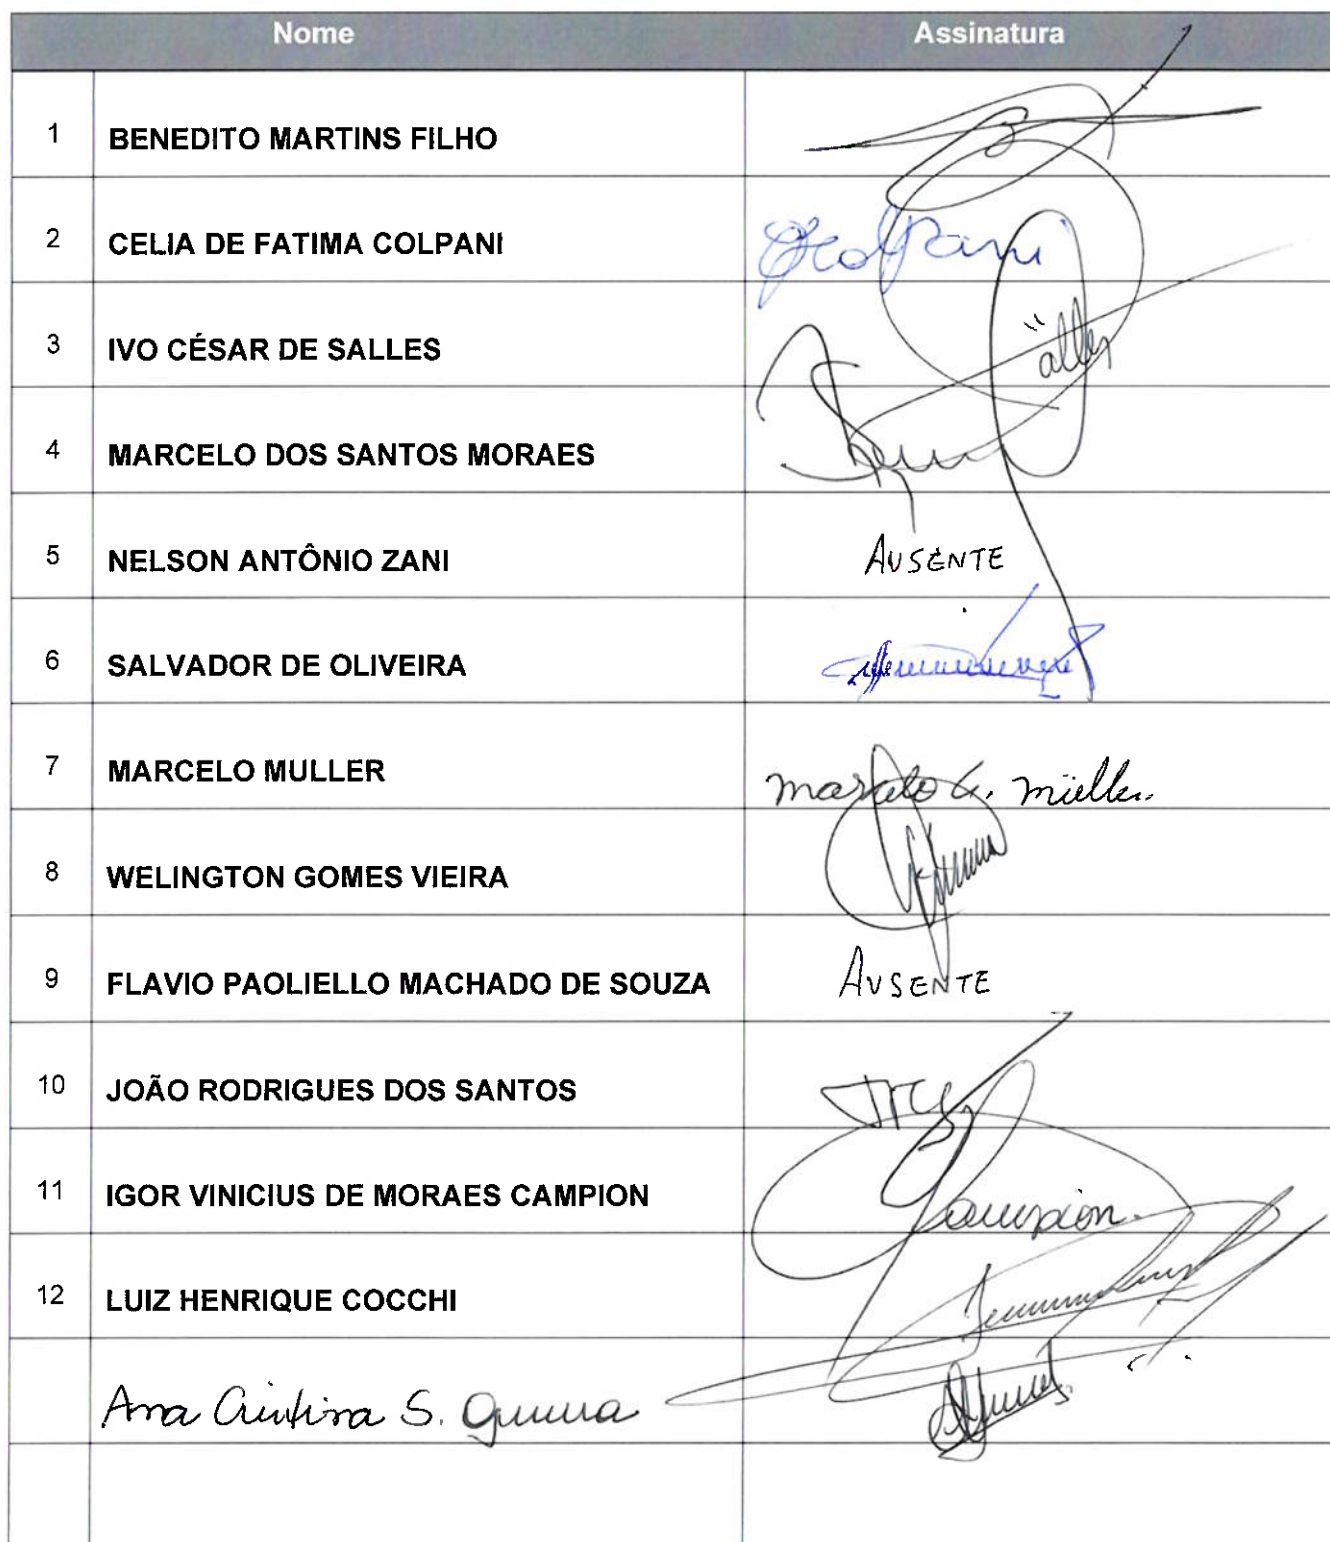 Nome Assinatura
1 BENEDITO MARTINS FILHO
2 CELIA DE FATIMA COLPANI Colpani
3 IVO CÉSAR DE SALLES alles
4 MARCELO DOS SANTOS MORAES
5 NELSON ANTÔNIO ZANI AUSENTE
6 SALVADOR DE OLIVEIRA
7 MARCELO MULLER Marcelo G. Müller.
8 WELINGTON GOMES VIEIRA
9 FLAVIO PAOLIELLO MACHADO DE SOUZA AUSENTE
10 JOÃO RODRIGUES DOS SANTOS
11 IGOR VINICIUS DE MORAES CAMPION Campion
12 LUIZ HENRIQUE COCCHI
Ana Cristina S.